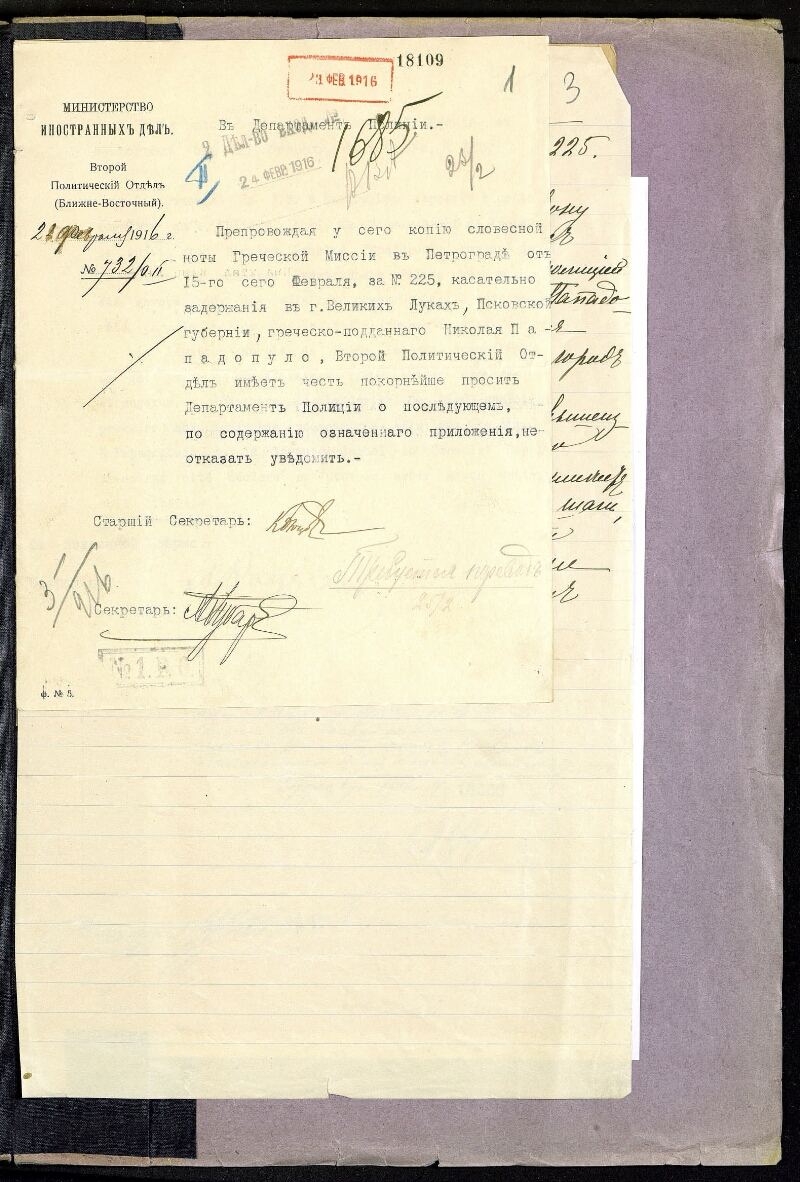 18109
23 ФЕВ 1916
1
3
МИНИСТЕРСТВО
ИНОСТРАННЫХЪ ДѢЛЪ.
Въ Департаментъ Полиціи.-
1685
2 ДѢЛ-ВО ВХОД. №
24 ФЕВР. 1916
II
25/2
225.
Второй
Политическій Отдѣлъ
(Ближне-Восточный).
1916 г.
№ 732/о.п.
Препровождая у сего копію словесной
ноты Греческой Миссіи въ Петроградѣ отъ
15-го сего Февраля, за № 225, касательно
задержанія въ г.Великихъ Лукахъ, Псковской
губерніи, греческо-подданнаго Николая П а -
п а д о п у л о , Второй Политическій От-
дѣлъ имѣетъ честь покорнѣйше просить
Департаментъ Полиціи о послѣдующемъ,
по содержанію означеннаго приложенія, не
отказать увѣдомить.-
Пападо-
городѣ
Старшій Секретарь:
Требуется переводъ
25/2
Секретарь:
№ 1.
ф. № 5.